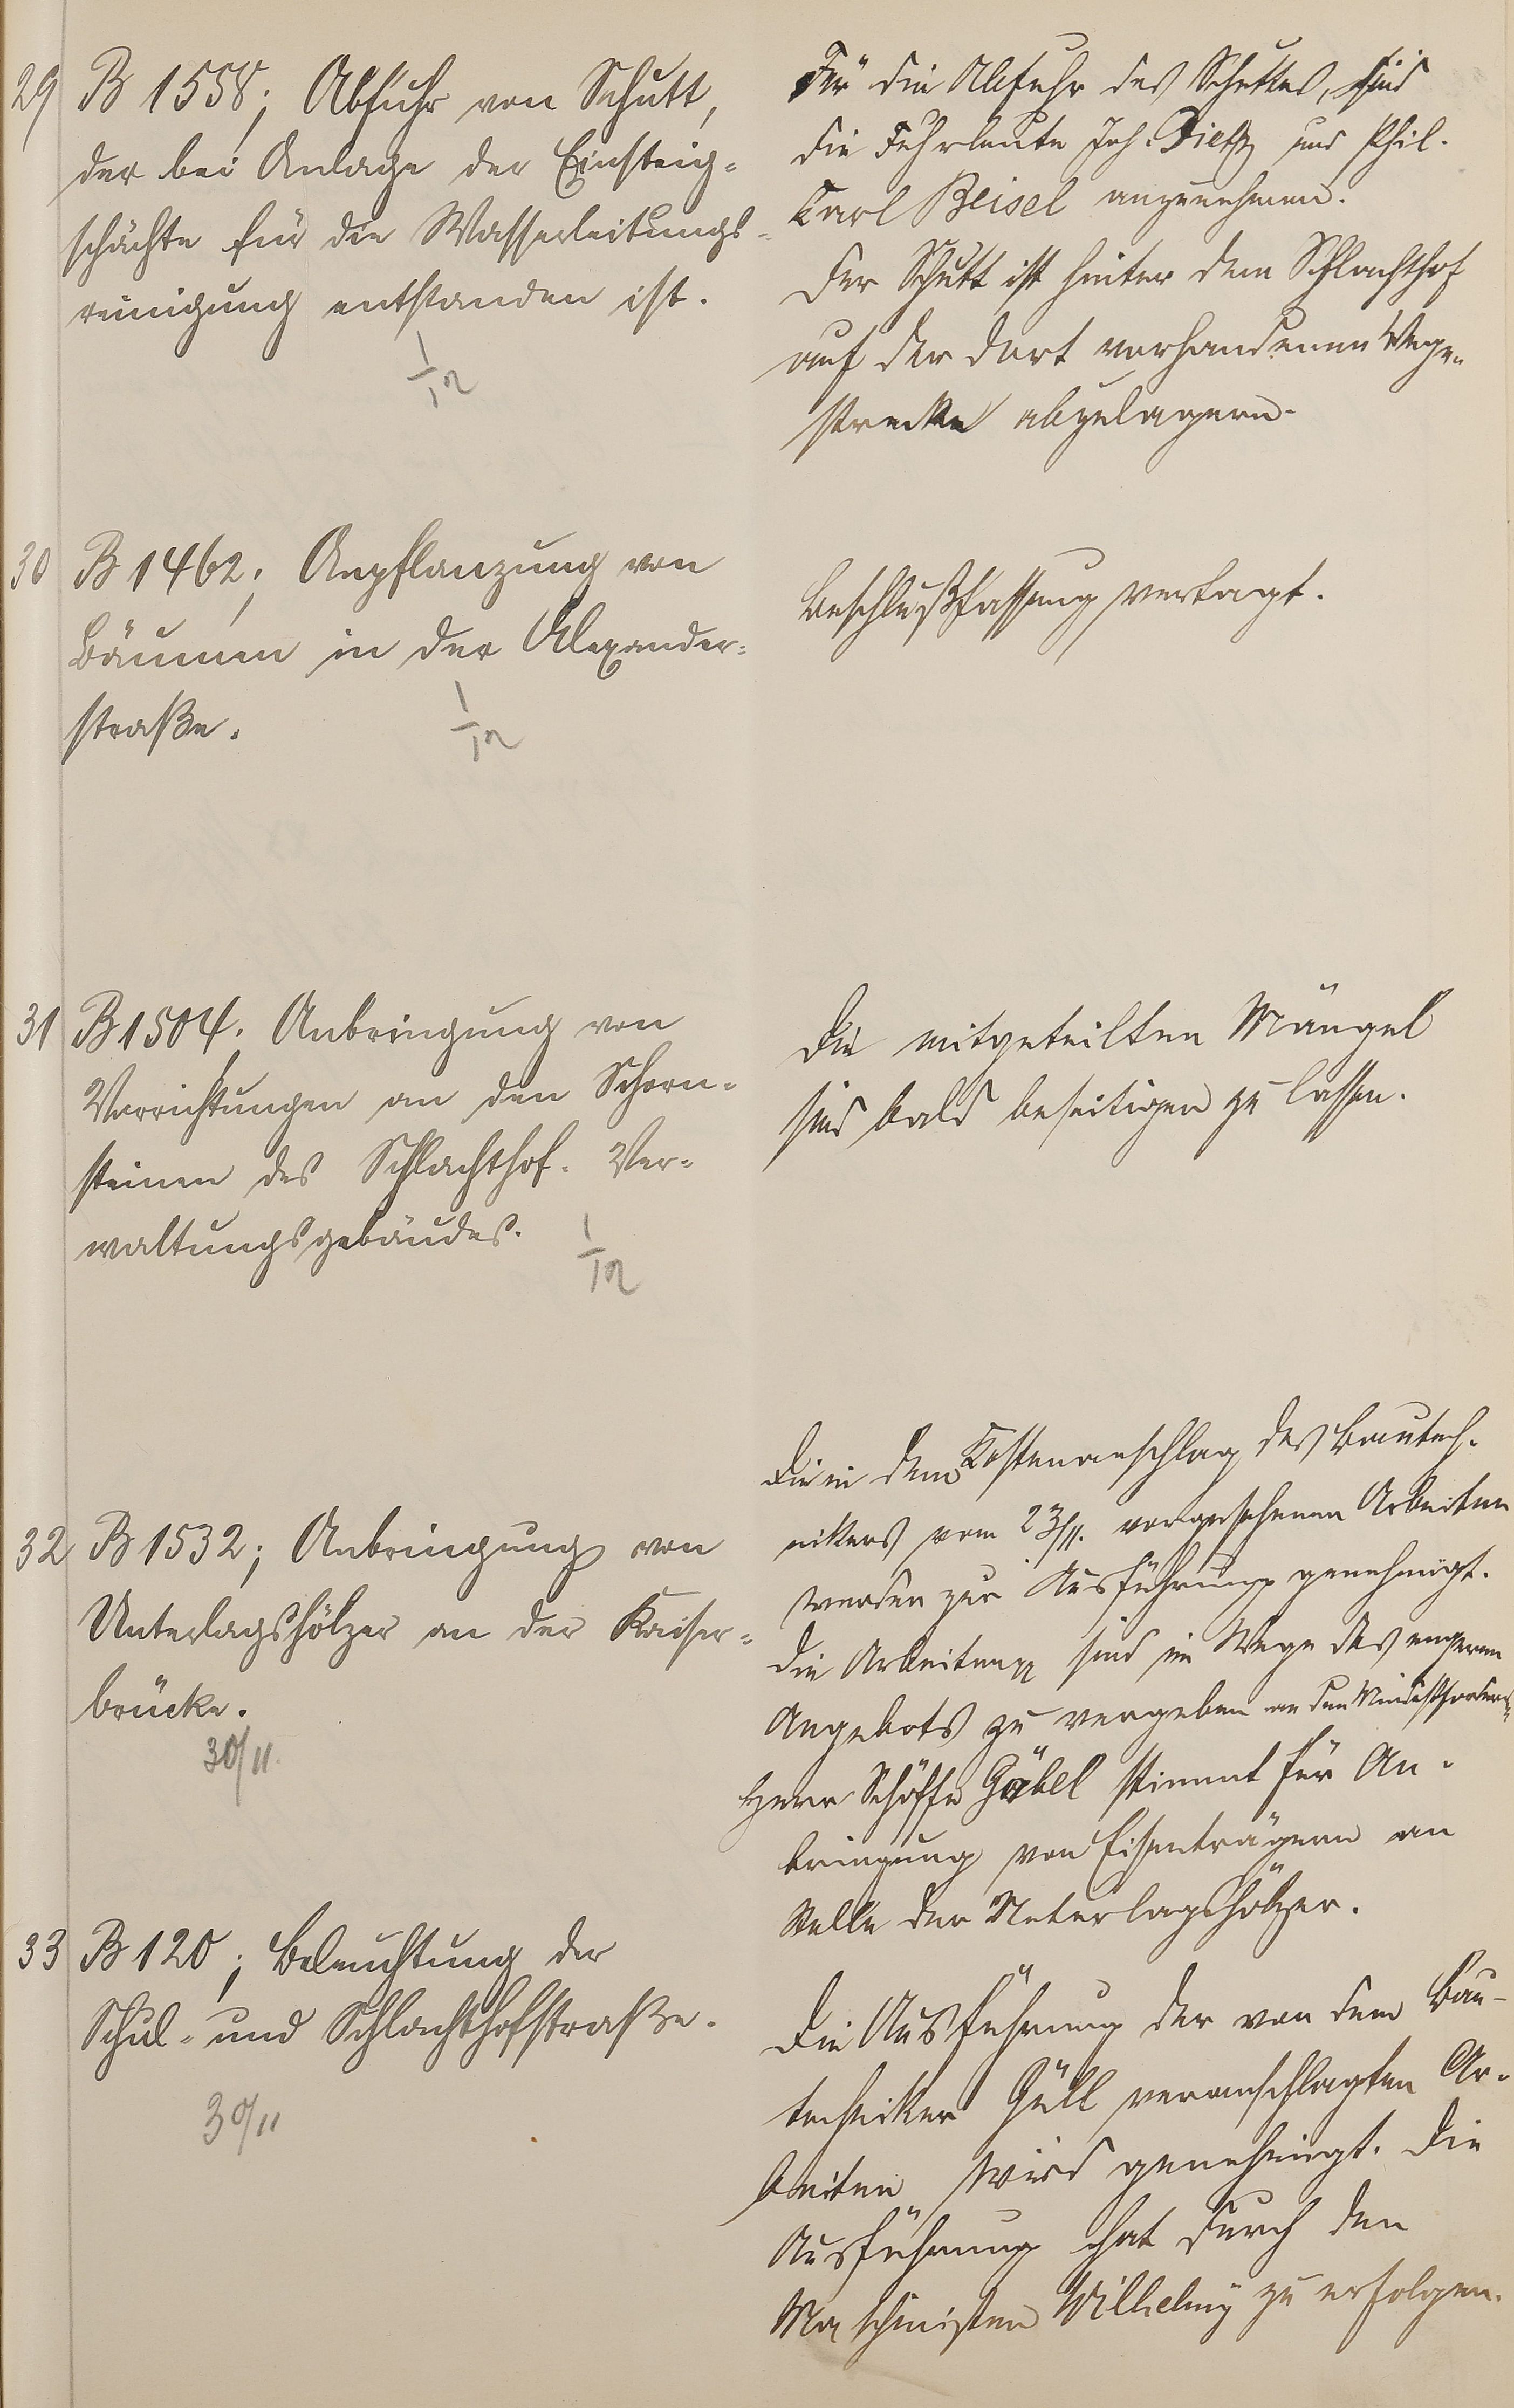 29 B 1558; Abfuhr von Schutt,
der bei Anlage der Einsteig-
schächte für die Wasserleitungs-
reinigung entstanden ist.
1/12
Für die Abfuhr des Schuttes, sind
die Fuhrleute Joh. Dietz und Phil.
Carl Beisel anzunehmen.
Der Schutt ist hinter dem Schlachthof
auf der dort vorhandenen Wege-
strecke abzulagern.
30 B 1462; Anpflanzung von
Bäumen in der Alexander-
straße.
1/12
Beschlußfassung vertagt.
31 B 1504. Anbringung von
Vorrichtungen an den Schorn-
steinen des Schlachthof-Ver-
waltungsgebäudes.
1/12
Die mitgeteilten Mängel
sind bald beseitigen zu lassen.
32 B 1532; Anbringung von
Unterlagshölzer an der Kaiser-
brücke.
30/11.
Die in dem Kostenanschlag des Bautech-
nikers vom 23/11. vorgesehenen Arbeiten
werden zur Ausführung genehmigt.
Die Arbeiten sind im Wege des engeren
Angebots zu vergeben an den Mindestfordern-
Herr Schöffe Göbel stimmt für An-
bringung von Eisenträgern an
Stelle der Unterlagshölzer.
33 B 120; Beleuchtung der
Schul- und Schlachthofstraße.
30/11
Die Ausführung der von dem Bau-
techniker Güll veranschlagten Ar-
beiten wird genehmigt. Die
Ausführung hat durch den
Maschinisten Wilhelmy zu erfolgen.